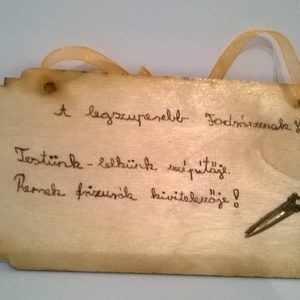 A legszuperebb Fodrásznak
Testünk-lelkünk szépítője
Remek frizurák kivitelezője!